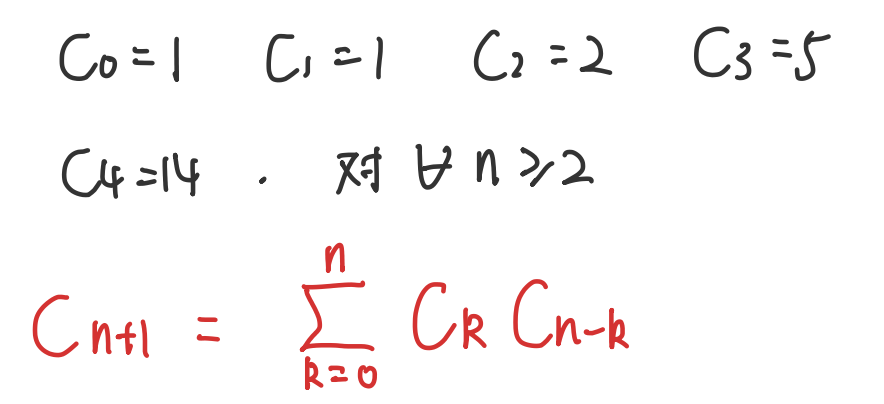 C₀ = 1 C₁ = 1 C₂ = 2 C₃ = 5
C₄ = 14 . 对 ∀ n ⩾ 2
Cₙ₊₁ = ∑ₖ₌₀ⁿ Cₖ Cₙ₋ₖ